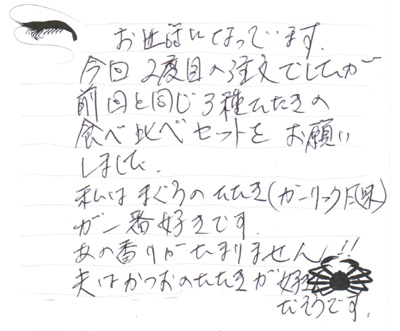 お世話になっています。
今回2度目の注文でしたが
前回と同じ3種たたきの
食べ比べセットをお願い
しました。
私はまぐろのたたき(ガーリック風味)
が一番好きです。
あの香りがたまりません!!
夫はかつおのたたきが好き
だそうです。